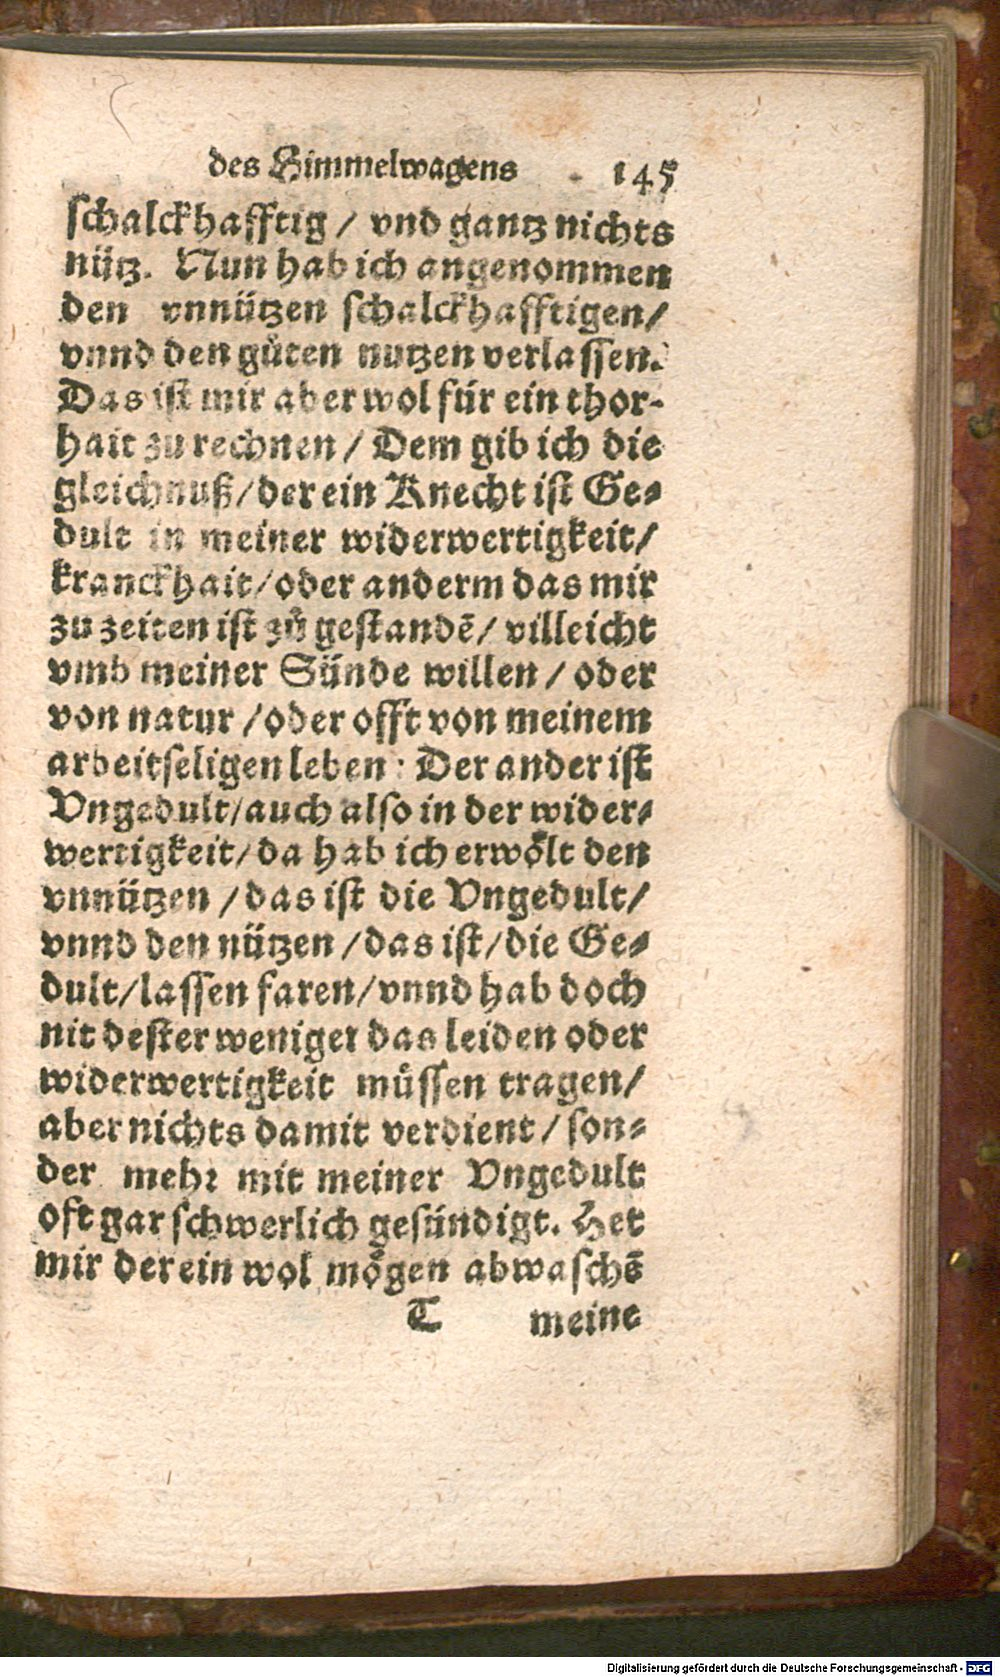 des Himmelwagens 145
schalckhafftig / vnd gantz nichts
nütz. Nun hab ich angenommen
den vnnützen schalckhafftigen/
vnnd den guͤten nutzen verlassen.
Das ist mir aber wol für ein thor-
hait zu rechnen / Dem gib ich die
gleichnuß / der ein Knecht ist Ge-
dult in meiner widerwertigkeit/
kranckhait / oder anderm das mir
zu zeiten ist zuͦ gestandē / villeicht
vmb meiner Sünde willen / oder
von natur / oder offt von meinem
arbeitseligen leben : Der ander ist
Vngedult / auch also in der wider-
wertigkeit / da hab ich erwoͤlt den
vnnützen / das ist die Vngedult/
vnnd den nützen / das ist / die Ge-
dult / lassen faren / vnnd hab doch
nit dester weniger das leiden oder
widerwertigkeit muͤssen tragen/
aber nichts damit verdient / son-
der mehr mit meiner Vngedult
oft gar schwerlich gesündigt. Het
mir der ein wol moͤgen abwaschē
T meine
Digitalisierung gefördert durch die Deutsche Forschungsgemeinschaft - DFG